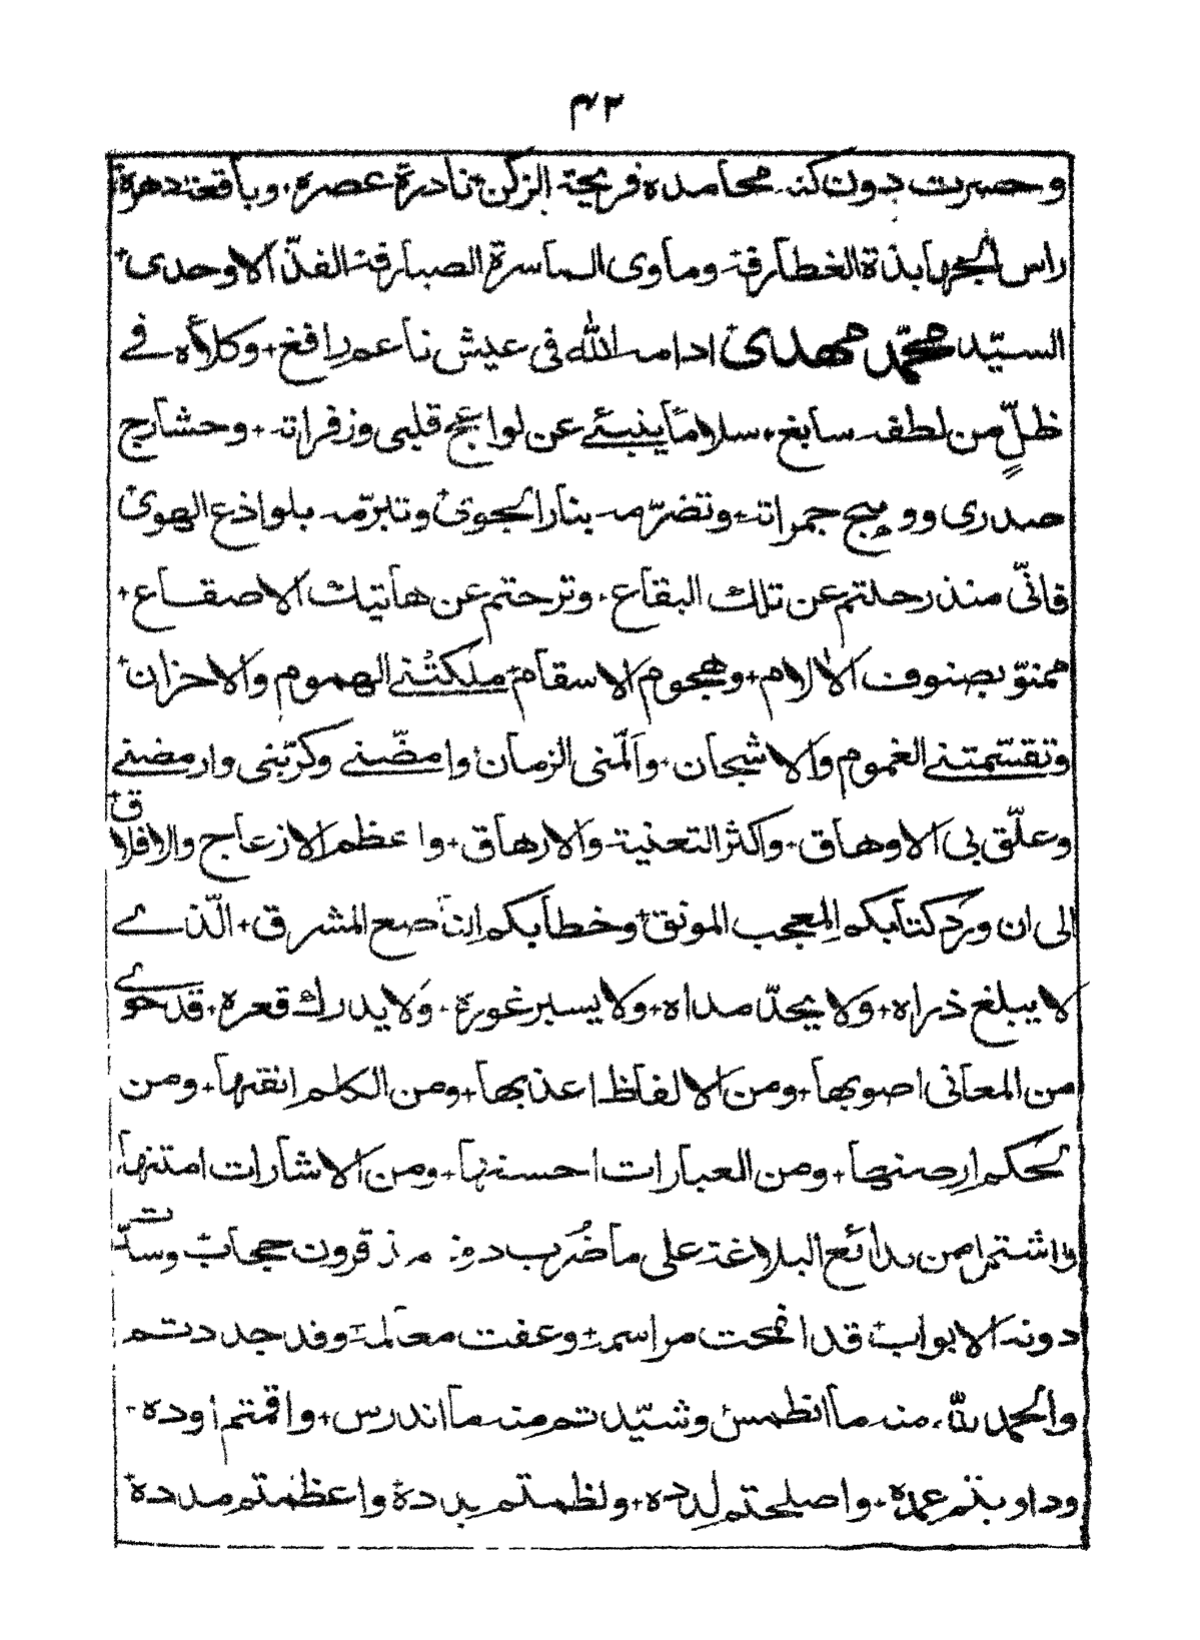 ٤٢
وحسرت دون كنه محامده قريحة الزكن+ نادرة عصره، وباقعة دهره+
راس الجهابذة الغطارقة وماوى السماسرة الصيارفة الفذّ الاوحدى+
السيّد محمّد مهدى ادامه الله فى عيش ناعم رافغ+ وكلأه فى
ظلّ من لطفه سابغ، سلاماً ينبئ عن لواعج قلبى وزفراته+ وحشارج
صدرى ووهيج جمراته+ وتضرّمه بنار الجوى+ وتبرّمه بلواذع الهوى+
فانّى منذ رحلتم عن تلك البقاع، وترحتم عن هاتيك الاصقاع+
ممنوّ بصنوف الآلام+ وهجوم الاسقام+ ملكتنى الهموم والاحزان+
وتقسّمتنى الغموم والاشجان، وآلمنى الزمان وامضّنى وكرّبنى وارمضنى
وعلّق بى الاوهاق+ واكثر التعنية والارهاق+ واعظم الازعاج والاقلاق+
الى ان ورد كتابكم المعجب المونق+ وخطابكم المصقع المشرق+ الّذى
لا يبلغ ذراه+ ولا يحدّ مداه+ ولا يسبر غوره، ولا يدرك قعره، قد حوى
من المعانى اصوبها+ ومن الالفاظ اعذبها+ ومن الكلم انقنها+ ومن
لحكم ارصنها+ ومن العبارات احسنها+ ومن الاشارات امتنها
واشتمل من بدائع البلاغة على ما ضرب دونه مذ قرون حجاب وسدّت
دونه الابواب+ قد انمحت مراسمه+ وعفت معالمه+ وقد جددتم
والحمد لله، منه ما انطمس+ وشيّدتم منه ما اندرس+ واقمتم اوده،
وداويتم عمده+ واصلحتم لدده+ ولظمتم بدده+ واعظمتم مدده+